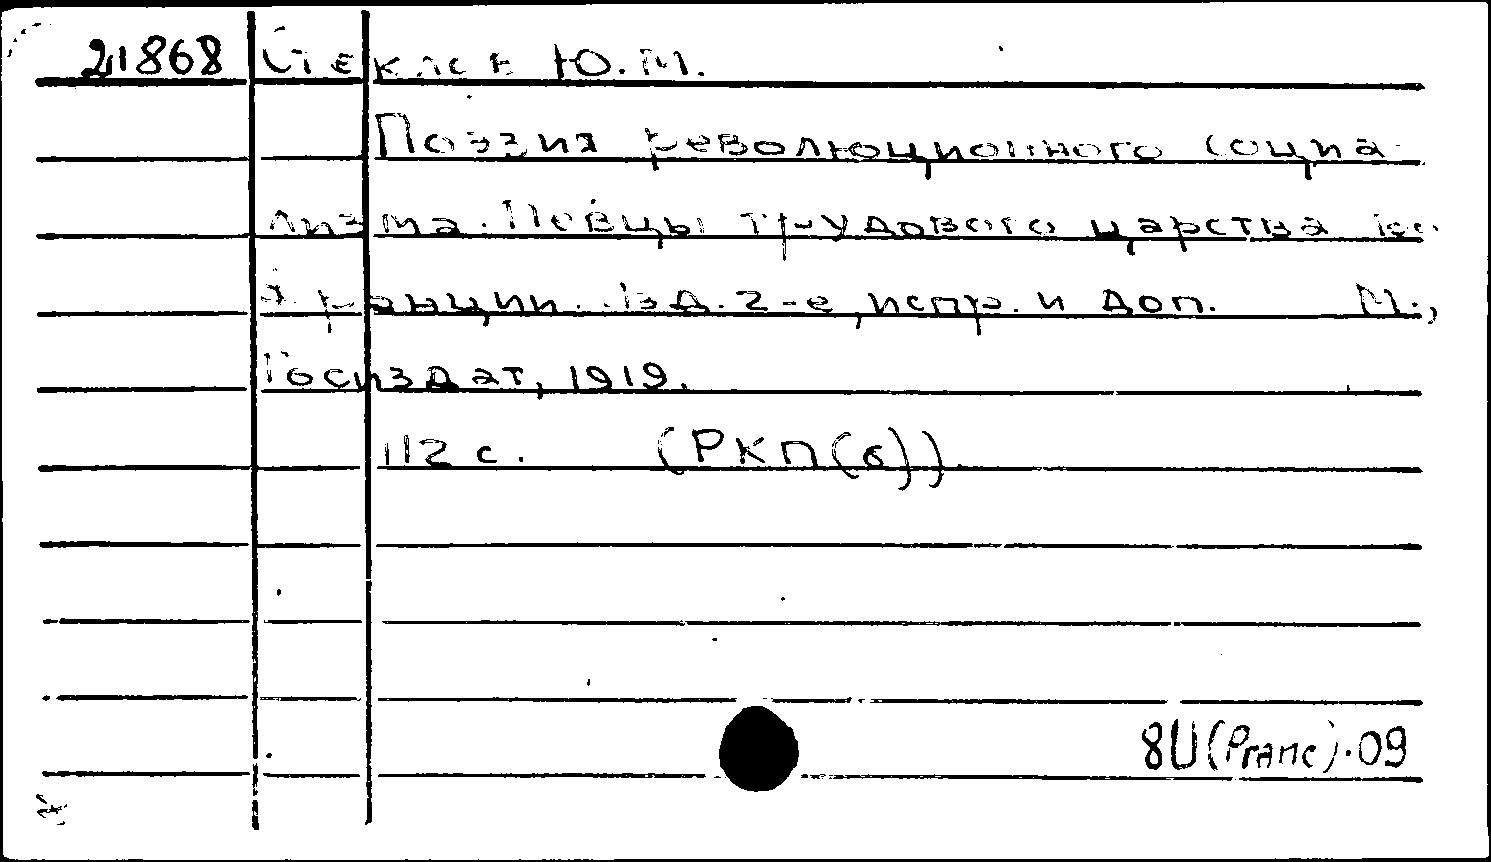 21868 Стеклов Ю.М.
Поэзия революционного социа-
лизма. Певцы трудового царства во
Франции. Изд. 2-е, испр. и доп. М.,
Госиздат, 1919.
112 с. (РКП(б)).
8U(Franc).09